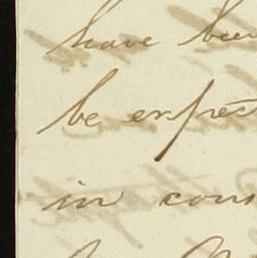 have been
be expec
in cons